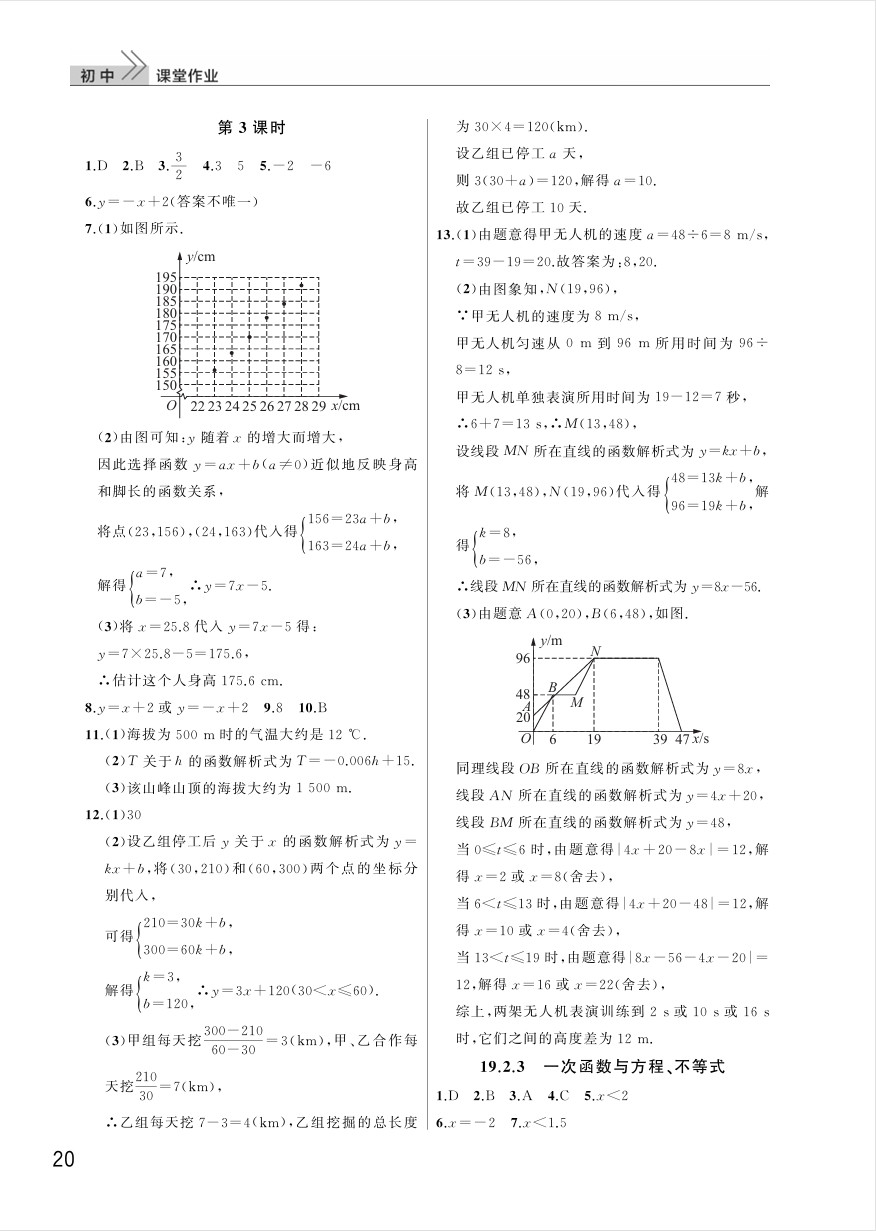 初中 课堂作业
第 3 课时
1.D 2.B 3.3/2 4.3 5 5.-2 -6
6.y=-x+2(答案不唯一)
7.(1)如图所示.
y/cm
195
190
185
180
175
170
165
160
155
150
O 22 23 24 25 26 27 28 29 x/cm
(2)由图可知:y 随着 x 的增大而增大,
因此选择函数 y=ax+b(a≠0)近似地反映身高
和脚长的函数关系,
将点(23,156),(24,163)代入得{156=23a+b,
163=24a+b,
解得{a=7,
b=-5, ∴y=7x-5.
(3)将 x=25.8 代入 y=7x-5 得:
y=7×25.8-5=175.6,
∴估计这个人身高 175.6 cm.
8.y=x+2 或 y=-x+2 9.8 10.B
11.(1)海拔为 500 m 时的气温大约是 12 ℃.
(2)T 关于 h 的函数解析式为 T=-0.006h+15.
(3)该山峰山顶的海拔大约为 1 500 m.
12.(1)30
(2)设乙组停工后 y 关于 x 的函数解析式为 y=
kx+b,将(30,210)和(60,300)两个点的坐标分
别代入,
可得{210=30k+b,
300=60k+b,
解得{k=3,
b=120, ∴y=3x+120(30<x≤60).
(3)甲组每天挖(300-210)/(60-30)=3(km),甲、乙合作每
天挖210/30=7(km),
∴乙组每天挖 7-3=4(km),乙组挖掘的总长度
为 30×4=120(km).
设乙组已停工 a 天,
则 3(30+a)=120,解得 a=10.
故乙组已停工 10 天.
13.(1)由题意得甲无人机的速度 a=48÷6=8 m/s,
t=39-19=20.故答案为:8,20.
(2)由图象知,N(19,96),
∵甲无人机的速度为 8 m/s,
甲无人机匀速从 0 m 到 96 m 所用时间为 96÷
8=12 s,
甲无人机单独表演所用时间为 19-12=7 秒,
∴6+7=13 s,∴M(13,48),
设线段 MN 所在直线的函数解析式为 y=kx+b,
将 M(13,48),N(19,96)代入得{48=13k+b,
96=19k+b, 解
得{k=8,
b=-56,
∴线段 MN 所在直线的函数解析式为 y=8x-56.
(3)由题意 A(0,20),B(6,48),如图.
y/m
96 N
48 B
A M
20
O 6 19 39 47 x/s
同理线段 OB 所在直线的函数解析式为 y=8x,
线段 AN 所在直线的函数解析式为 y=4x+20,
线段 BM 所在直线的函数解析式为 y=48,
当 0≤t≤6 时,由题意得|4x+20-8x|=12,解
得 x=2 或 x=8(舍去),
当 6<t≤13 时,由题意得|4x+20-48|=12,解
得 x=10 或 x=4(舍去),
当 13<t≤19 时,由题意得|8x-56-4x-20|=
12,解得 x=16 或 x=22(舍去),
综上,两架无人机表演训练到 2 s 或 10 s 或 16 s
时,它们之间的高度差为 12 m.
19.2.3 一次函数与方程、不等式
1.D 2.B 3.A 4.C 5.x<2
6.x=-2 7.x<1.5
20